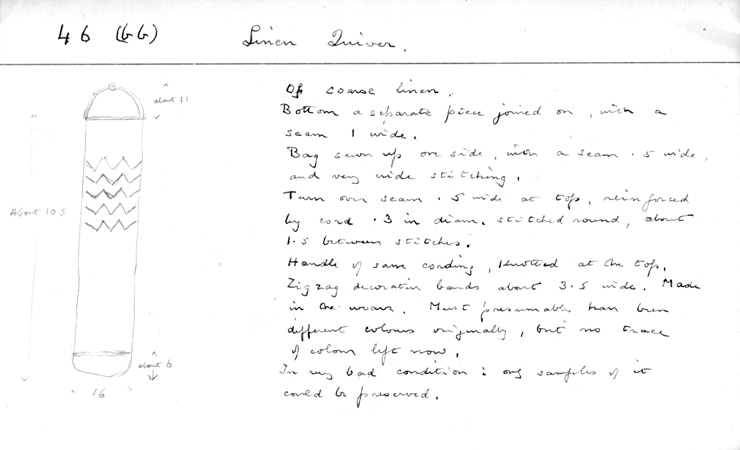 46 (bb)
Linen Quiver.
Of coarse linen.
Bottom a separate piece joined on, with a
seam 1 wide.
Bag sewn up one side, with a seam .5 wide,
and very wide stitching.
Turn over seam .5 wide at top, reinforced
by cord .3 in diam. stitched round, about
1.5 between stitches.
Handle of same cording, knotted at the top.
Zigzag decorative bands about 3.5 wide. Made
in the weave. Must presumably have been
different colours originally, but no trace
of colour left now.
In very bad condition : only samples of it
could be preserved.
about 11
About 105
about 6
16